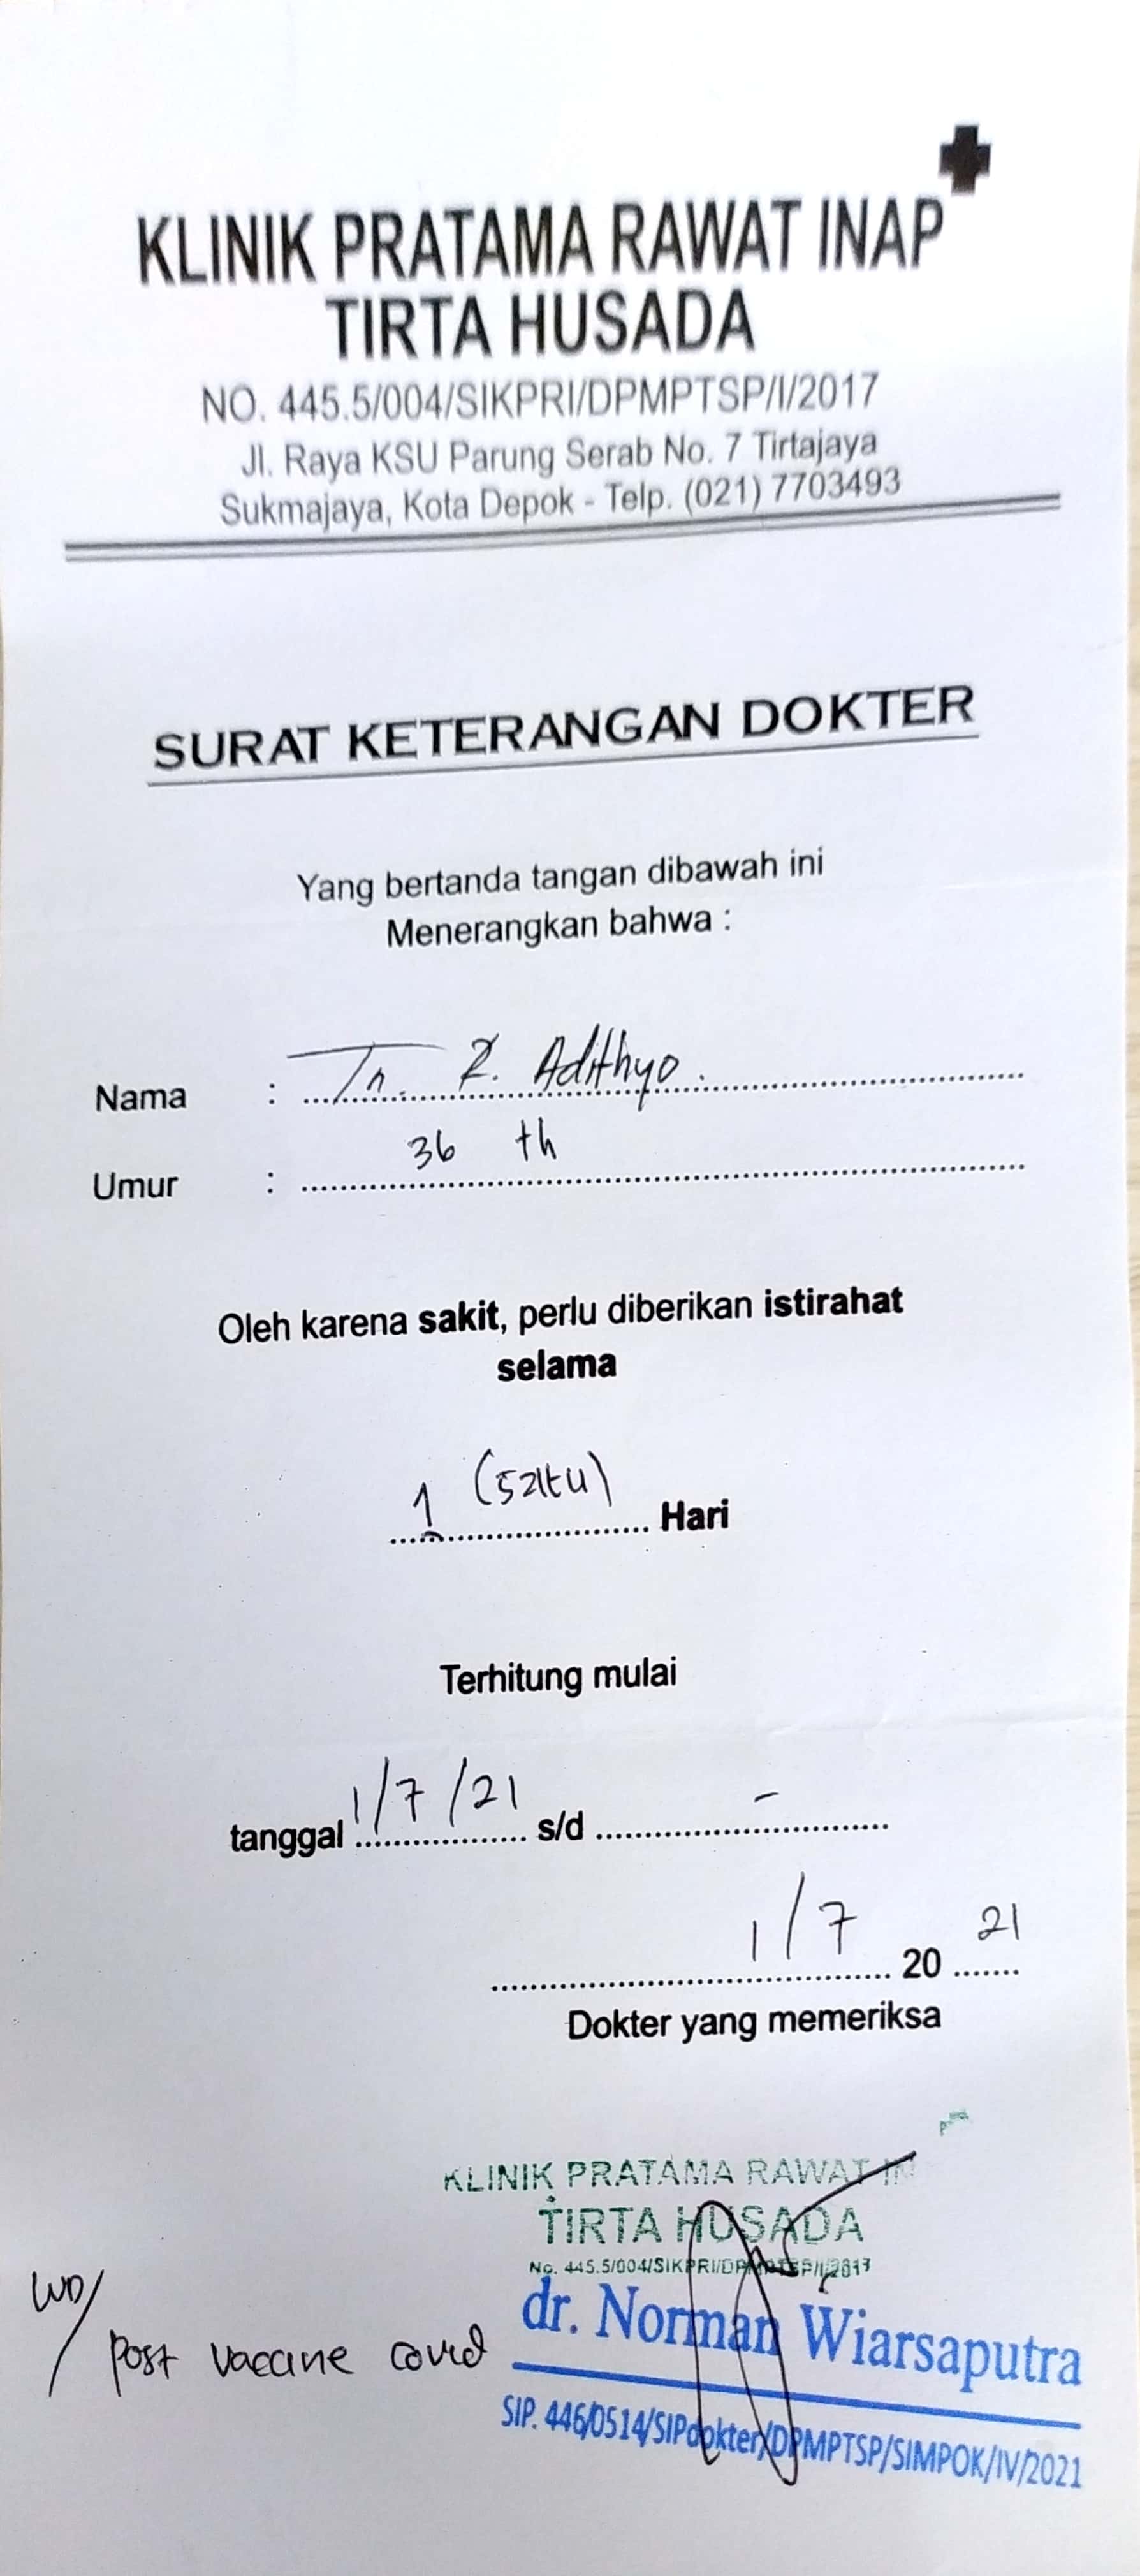 KLINIK PRATAMA RAWAT INAP
TIRTA HUSADA
NO. 445.5/004/SIKPRI/DPMPTSP/I/2017
Jl. Raya KSU Parung Serab No. 7 Tirtajaya
Sukmajaya, Kota Depok - Telp. (021) 7703493
SURAT KETERANGAN DOKTER
Yang bertanda tangan dibawah ini
Menerangkan bahwa :
Nama : Tn. R. Adithyo.
Umur : 36 th
Oleh karena sakit, perlu diberikan istirahat
selama
1 (satu) Hari
Terhitung mulai
tanggal 1/7/21 s/d -
1/7 20 21
Dokter yang memeriksa
KLINIK PRATAMA RAWAT IN
TIRTA HUSADA
No. 445.5/004/SIKPRI/DPMPTSP/I/2017
dr. Norman Wiarsaputra
SIP. 446/0514/SIPdokter/DPMPTSP/SIMPOK/IV/2021
WD/
post vaccine covid